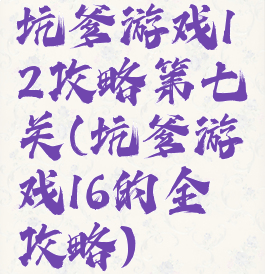 坑爹游戏1
2攻略第七
关(坑爹游
戏16的全
攻略)